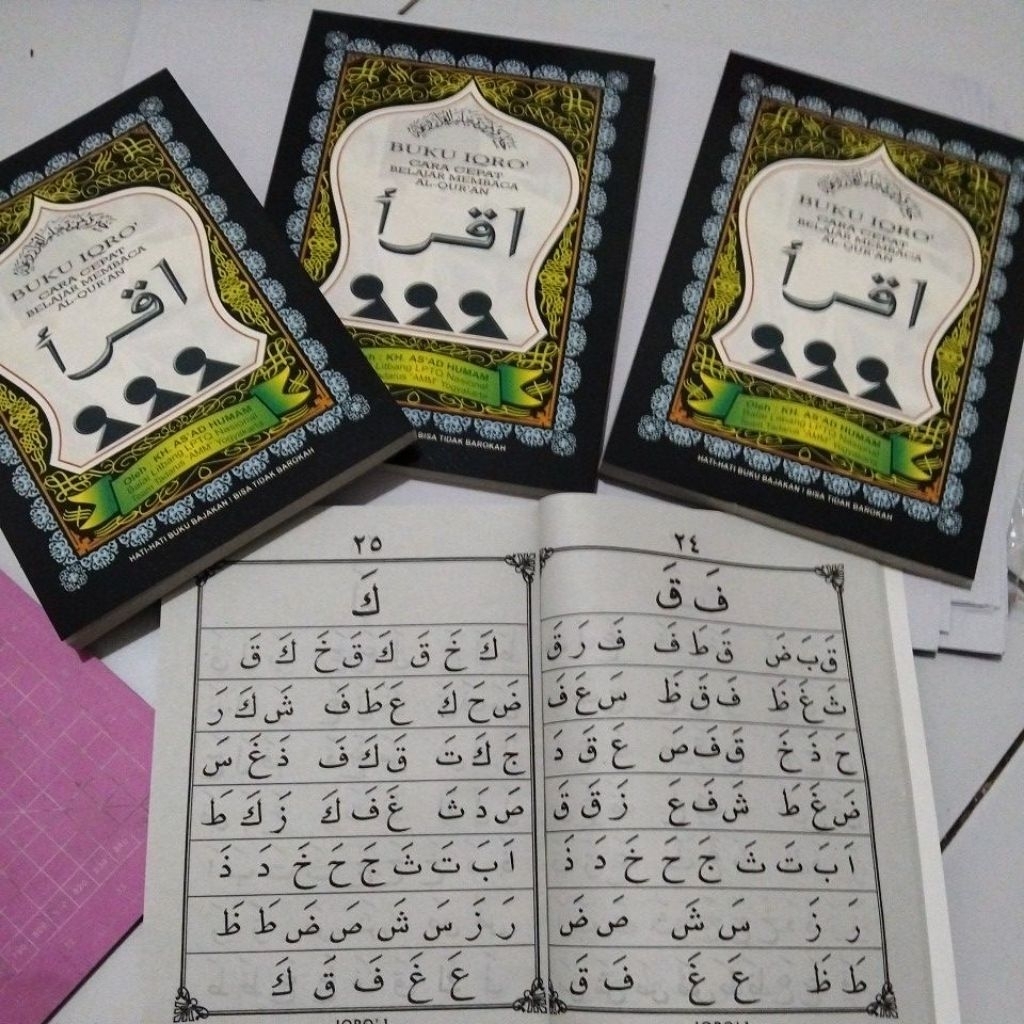 BUKU IQRO'
CARA CEPAT
BELAJAR MEMBACA
AL-QUR'AN
اقرأ
Oleh : KH. AS'AD HUMAM
Balai Litbang LPTQ Nasional
Team Tadarus "AMM" Yogyakarta
HATI-HATI BUKU BAJAKAN ! BISA TIDAK BAROKAH
BUKU IQRO'
CARA CEPAT
BELAJAR MEMBACA
AL-QUR'AN
اقرأ
: KH. AS'AD HUMAM
Litbang LPTQ Nasional
"AMM"
BISA TIDAK BAROKAH
BUKU IQRO'
CARA CEPAT
BELAJAR MEMBACA
AL-QUR'AN
اقرأ
Oleh : KH. AS'AD HUMAM
HATI-HATI BUKU BAJAKAN ! BISA TIDAK BAROKAH
٢٤
فَ قَ
قَ بَ ضَ قَ طَ فَ فَ رَ قَ
ثَ غَ ظَ فَ قَ ظَ سَ عَ فَ
حَ ذَ خَ قَ فَ صَ عَ قَ دَ
ضَ غَ طَ شَ فَ عَ زَ قَ قَ
اَ بَ تَ ثَ جَ حَ خَ دَ ذَ
رَ زَ سَ شَ صَ ضَ
طَ ظَ عَ غَ فَ قَ
٢٥
كَ
كَ خَ قَ كَ قَ خَ كَ قَ
ضَ حَ كَ عَ طَ فَ شَ كَ رَ
جَ كَ تَ قَ كَ فَ ذَ غَ سَ
صَ دَ ثَ غَ فَ كَ زَ كَ طَ
اَ بَ تَ ثَ جَ حَ خَ دَ ذَ
رَ زَ سَ شَ صَ ضَ طَ ظَ
عَ غَ فَ قَ كَ